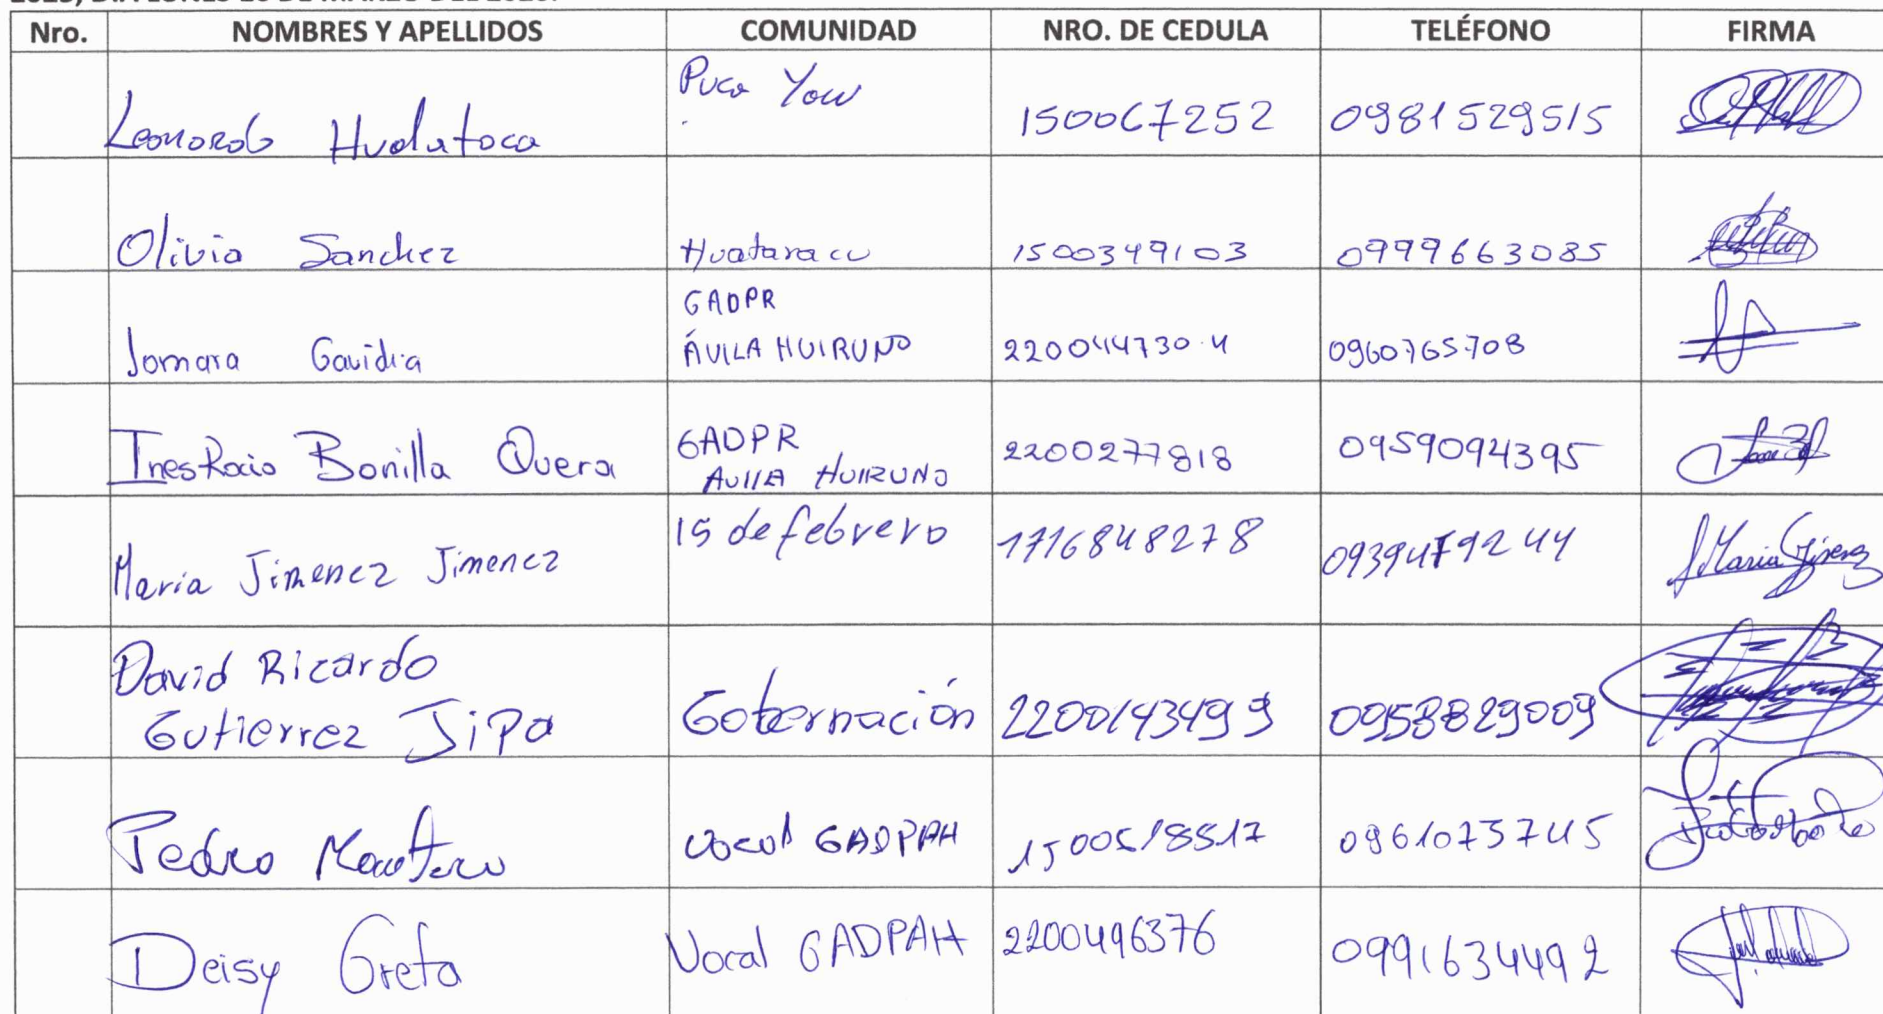 Nro. NOMBRES Y APELLIDOS COMUNIDAD NRO. DE CEDULA TELÉFONO FIRMA
Leonardo Hualatoca Puca 150067252 0981529515
Olivia Sanchez Huataracu 1500349103 0999663085
Jomara Gavidia GADPR
ÁVILA HUIRUNO 220044730-4 0960765708
Ines Rocio Bonilla Quera GADPR
AVILA HUIRUNO 2200277818 0959094395
Maria Jimenez Jimenez 15 de febrero 1716848278 0939479244 Maria Jimenez
David Ricardo
Gutierrez Jipa Gobernación 2200143499 0958829009
Pedro vocal GADPAH 1500518517 0961073745
Deisy Grefa Vocal GADPAH 2200496376 0991634492